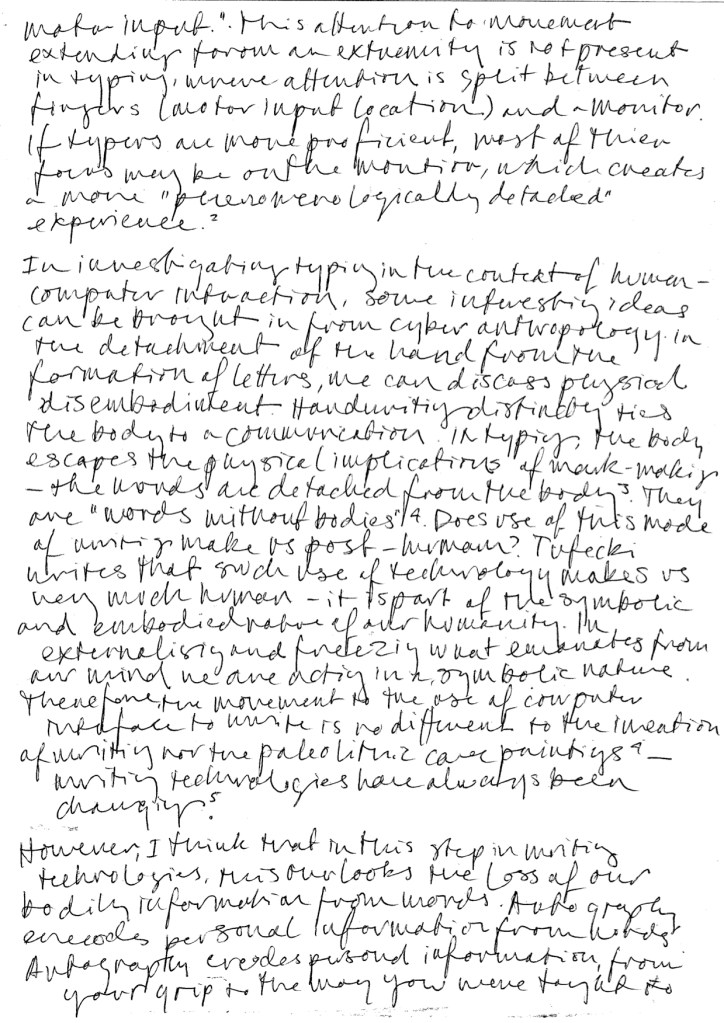 motor input.". This attention to movement
extending forom an extremity is not present
in typing, where attention is split between
fingers (motor input location) and a monitor.
If typers are more proficient, most of thier
focus may be on the montior, which creates
a more "phenomenologically detached"
experience.²
In investigating typing in the context of human-
computer interaction, some interesting ideas
can be brought in from cyber anthropology. in
the detachment of the hand from the
formation of letters, we can discuss physical
disembodiment. Handwriting distinctly ties
the body to a communication. In typing, the body
escapes the physical implications of mark-making
– the words are detached from the body³. They
are "words without bodies"⁴. Does use of this mode
of writing make us post-human? Tufecki
writes that such use of technology makes us
very much human – it is part of the symbolic
and embodied nature of our humanity. In
externalising and freezing what emanates from
our mind we are acting in a symbolic nature.
Therefore, the movement to the use of computer
interface to write is no different to the invention
of writing nor the paleolithic cave paintings⁴ –
writing technologies have always been
changing⁵.
However, I think that in this step in writing
technologies, this ourlooks the loss of our
bodily information from words. Autography
encodes personal information from words
Autography encodes personal information, from
your grip to the way you were taught to